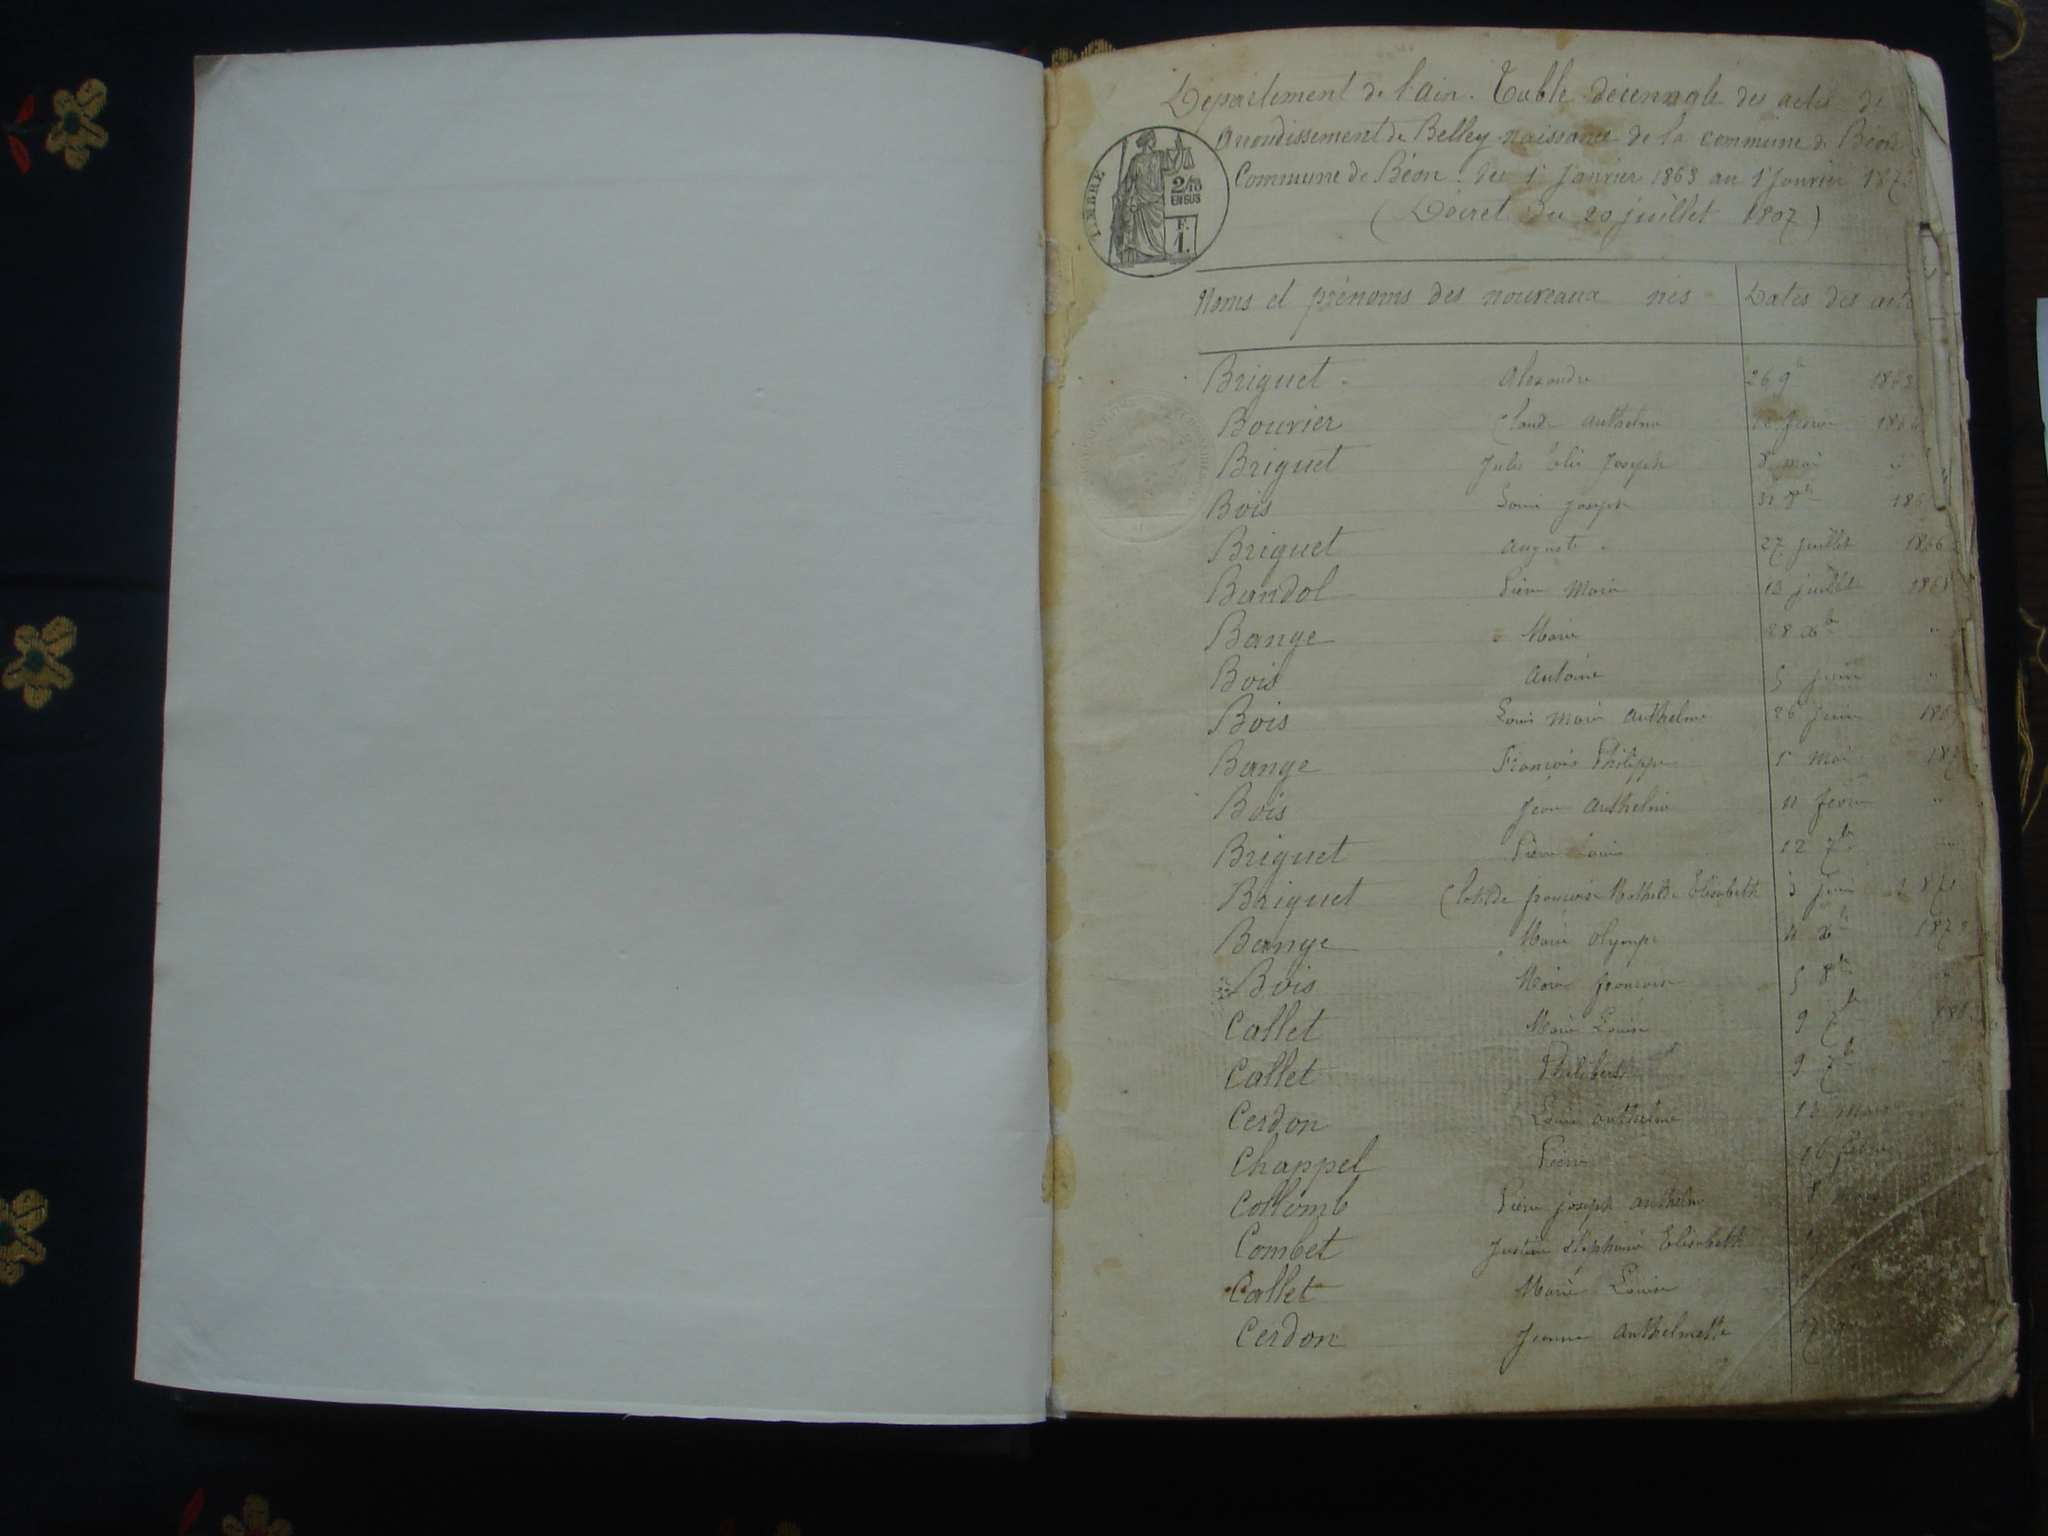 Département de l'Ain. Table décennale des actes de
Arrondissement de Belley naissance de la commune de Béon
Commune de Béon. du 1r Janvier 1863 au 1r Janvier 187
(Décret du 20 juillet 1807)
TIMBRE
2/10
EN SUS
F.
1.
Noms et prénoms des nouveaux nés Dates des acte
Briguet Alexandre 26 9b 1863
Bouvier Claude Anthelme février 186
Briguet Jules Elie Joseph 8 mai "
Bois Louis Joseph 31 8b 186
Briguet Auguste 27 juillet 1866
Bandol Pierre Marie 13 juillet 1868
Bange Marie 28 xb "
Bois Antoine 5 "
Bois Louis Marie Anthelme 26 Juin 186
Bange François Philippe 5 Mai 187
Bois Jean Anthelme 11 février "
Briguet Pierre Louis 12 7b "
Briguet Clotilde françoise Mathilde Elisabeth 3 1871
Bange Marie Olympe 11 xb 1872
Bois Marie françoise 5 8b "
Callet Marie Louise 9 7b 186
Callet Philibert 9 7b
Cerdon Louis Anthelme 13 Mars
Chappel Pierre 16
Collomb Pierre joseph Anthelme 8
Combet Justine Stéphanie Elisabeth
Callet Marie Louise
Cerdon Jeanne Anthelmette